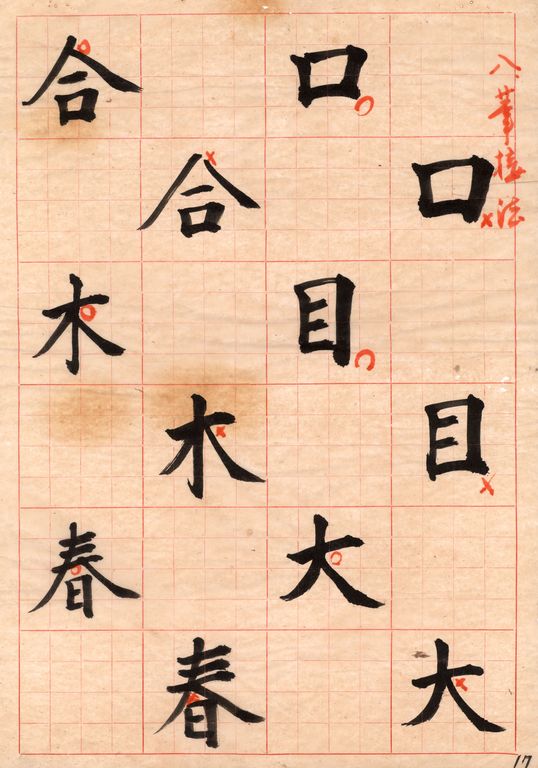 八、筆接法
口目大
口目大
合木春
合木春
17